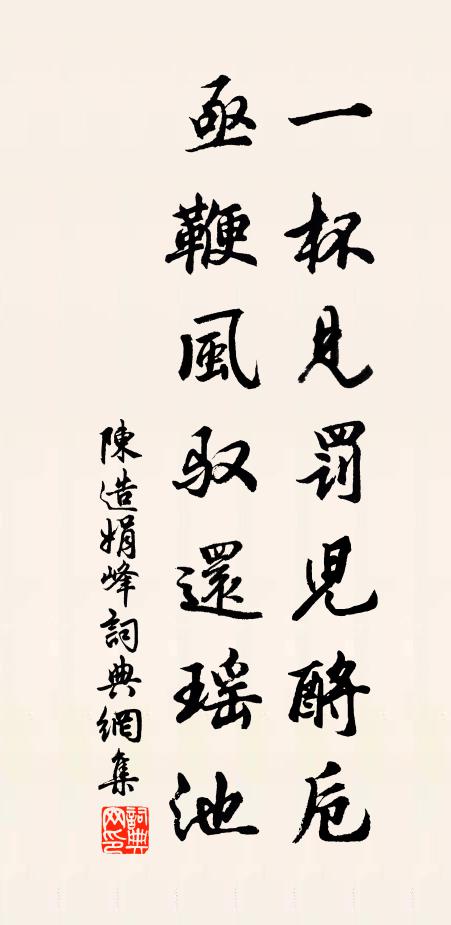 一杯見罰兕酹卮
亟鞭風馭還瑤池
陳造娟峰詞典網集
詞典網印